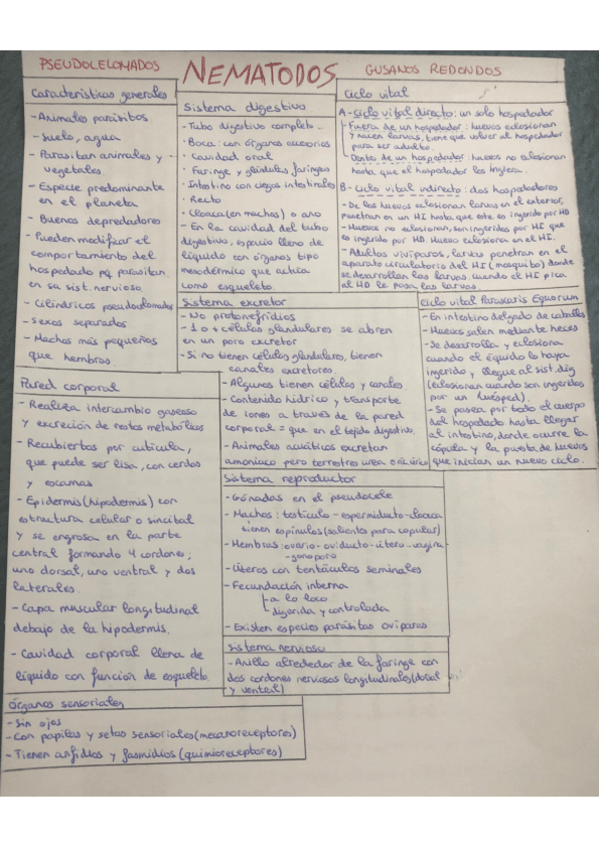 PSEUDOCELOMADOS
NEMATODOS
GUSANOS REDONDOS
Características generales
- Animales parásitos
- Suelo, agua
- Parasitan animales y
vegetales
- Especie predominante
en el planeta
- Buenos depredadores
- Pueden modificar el
comportamiento del
hospedado pq parasitan
en su sist. nervioso.
- Cilíndricos pseudocelomados
- Sexos separados
- Machos más pequeños
que hembras.
Pared corporal
- Realiza intercambio gaseoso
y excreción de restos metabólicos
- Recubiertos por cutícula,
que puede ser lisa, con cerdas
y escamas
- Epidermis (hipodermis) con
estructura celular o sincitial
y se engrosa en la parte
central formando 4 cordones;
uno dorsal, uno ventral y dos
laterales.
- Capa muscular longitudinal
debajo de la hipodermis.
- Cavidad corporal llena de
líquido con función de esqueleto.
Órganos sensoriales
- Sin ojos
- Con papilas y setas sensoriales (mecanoreceptores)
- Tienen anfidios y fasmidios (quimioreceptores)
Sistema digestivo
- Tubo digestivo completo
- Boca: con órganos accesorios
- Cavidad oral
- Faringe y glándulas faríngeas
- Intestino con ciegos intestinales
- Recto
- Cloaca (en machos) o ano
- En la cavidad del tubo
digestivo, espacio lleno de
líquido con órganos tipo
mesodérmico que actúa
como esqueleto.
Sistema excretor
- No protonefridios
- 1 o + células glandulares se abren
en un poro excretor
- Si no tienen células glandulares, tienen
canales excretores.
- Algunos tienen células y canales
- Contenido hídrico y transporte
de iones a través de la pared
corporal = que en el tejido digestivo.
- Animales acuáticos excretan
amoniaco pero terrestres urea o úrico
Sistema reproductor
- Gónadas en el pseudocele
- Machos: testículo - espermiducto - cloaca
tienen espínulas (salientes para copular)
- Hembras: ovario - oviducto - útero - vagina -
- gonoporo
- Úteros con tentáculos seminales
- Fecundación interna
a lo loco
digerida y controlada
- Existen especies parásitas ovíparas
Sistema nervioso
- Anillo alrededor de la faringe con
dos cordones nerviosos longitudinales (dorsal
y ventral)
Ciclo vital
A - Ciclo vital directo: un solo hospedador
Fuera de un hospedador: huevos eclosionan
y nacen larvas, tiene que volver al hospedador
para ser adulto.
Dentro de un hospedador: huevos no eclosionan
hasta que el hospedador los ingiera.
B - Ciclo vital indirecto: dos hospedadores
- De los huevos eclosionan larvas en el exterior,
penetran en un HI hasta que este es ingerido por HD
- Huevos no eclosionan, son ingeridos por HI que
es ingerido por HD. Huevo eclosiona en el HI.
- Adultos vivíparos, larvas penetran en el
aparato circulatorio del HI (mosquito) donde
se desarrollan las larvas. Cuando el HI pica
al HD le pasa las larvas.
Ciclo vital Parascaris Equorum
- En intestino delgado de caballos
- Huevos salen mediante heces
- Se desarrolla y eclosiona
cuando el équido lo haya
ingerido y llegue al sist. dig
(eclosionan cuando son ingeridos
por un huésped).
- Se pasea por todo el cuerpo
del hospedado hasta llegar
al intestino, donde ocurre la
cópula y la puesta de huevos
que inician un nuevo ciclo.